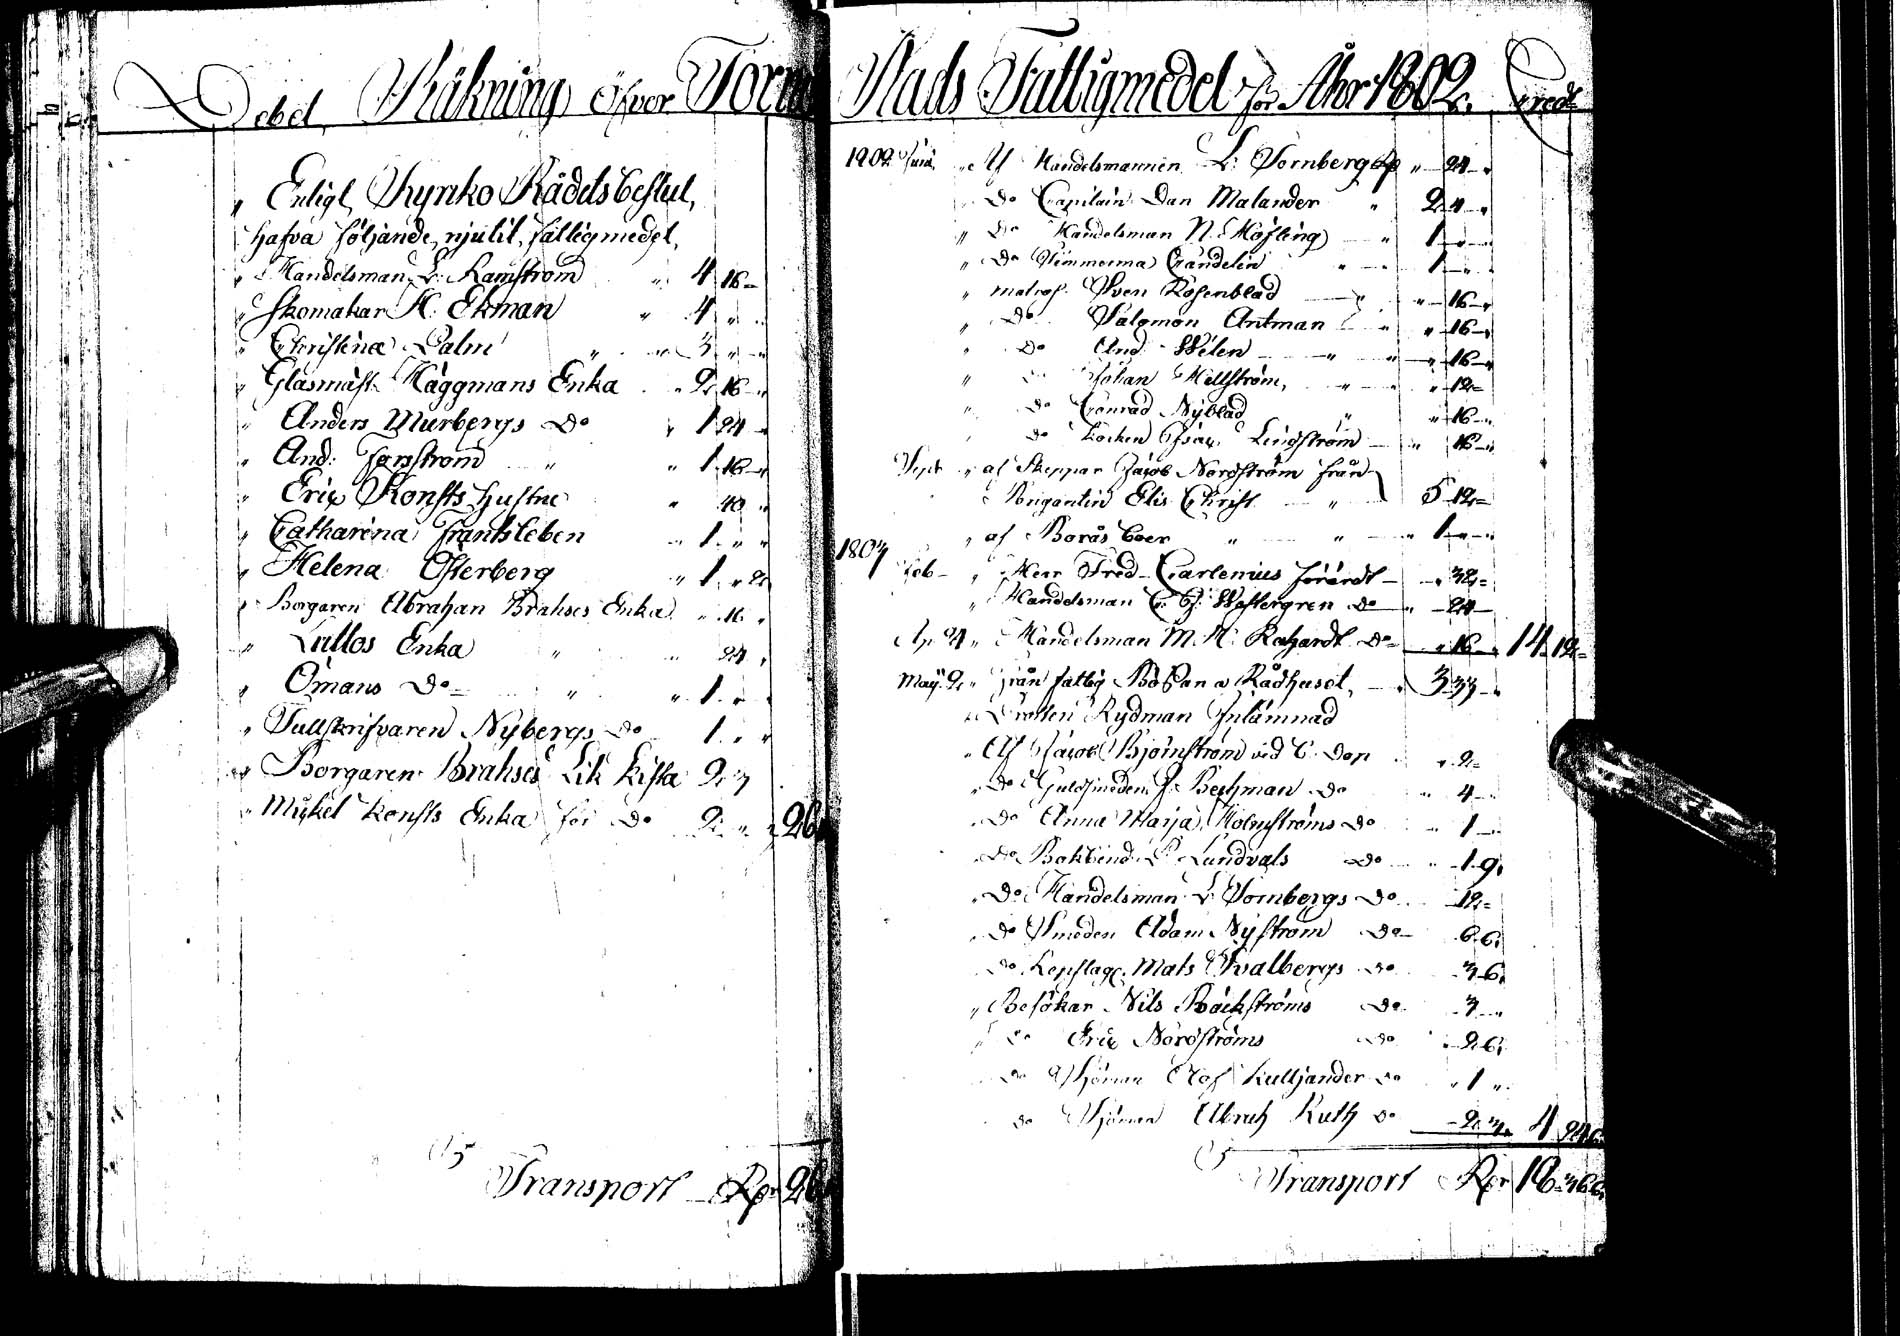 Debet, Räkning öfver Torn
" Enligt, Kyrko Rådets beslut,
hafva följande, njutit, fattigmedel,
" Handelsman L: Ramström " 4 16 –
" Skomakar H. Ekman " 4 "
" Christina Palm " " 3 " "
" Glasmäst. Häggmans Enka " 2 16 "
" Anders Murbergs Do " 1 24 "
" And: Forsström " " 1 16 "
" Eric Konsts hustru " 40 "
" Catharina Frantsleben " 1 " "
" Helena Österberg " 1 " 2
" Borgaren Abraham Brahses Enka " 16 "
" Luttos Enka " " 24 "
" Ömans Do " " 1 " "
" Tullskrifvaren Nybergs Do 1 " "
" Borgaren Brahses Lik kista 2 " 3
" Mickel Konsts Enka för Do 2 " " 26
Transport Rdr 26
Stads Fattigmedel för Åhr 1802. Credt
1802 Junii " Af Handelsmannen L: Tornberg Rdr " 24 "
" Do Capitain Dan Malander " 2 4 "
" Do Handelsman N. Höfling " 1 " "
" Do Timmerma Grandelin " 1 " "
" matros. Sven Rosenblad " 16 "
" Do Salomon Antman " " 16 "
" Do And. Wélen " " 16 "
" Do Johan Hellström, " " 12 "
" Do Conrad Nyblad " " 16 "
" Do kocken Isac Lindström " 16 "
Sept " af Skeppar Jacob Nordström från
Brigantin Elis Christ " 5 12 "
" af Borås boer " " " 1 " "
1803
Feb – " Herr Fred Carlenius förärdt " 32 "
" Handelsman C. G. Westergren Do " 24 –
Ap. 24 " Handelsman M. H. Do " 16 " 14 12 "
Maÿ 2 " från fattig Bössan a Rådhuset, 3 33 "
Rydman Inlämnad
" Af Jacob Björnström ved Do " 2 "
" Do Guldsmeden J. Do " 4 "
" Do Anna Maja Holmströms Do " 1 "
" Do Bokbind. L. Lundvals Do " 1 9
" Do Handelsman L: Tornbergs Do 12 "
" Do Smeden Adam Nyström Do 6 6
" Do Mats Svalbergs Do 3 6
" Besökar Nils Bäckströms Do 3 "
" Do Eric Nordströms Do 2 6
" Do Sjöman Olof Do " 1 "
" Do Sjöman Abrah Ruth Do 2 3 4 24
Transport Rdr 18 36 6